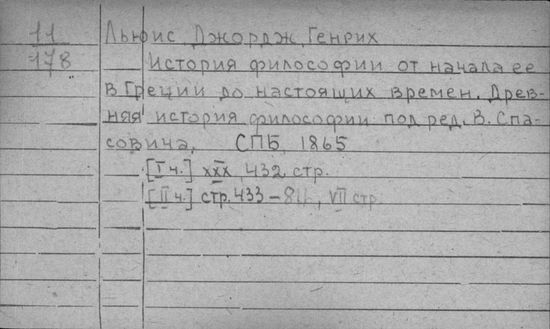 11 Льюис Джордж Генрих
178 История философии от начала ее
в Греции до настоящих времен. Древ-
няя история философии под ред. В. Спа-
совича. СПБ, 1865
[I ч.] XXX, 432 стр.
[II ч.] стр. 433-811, VII стр